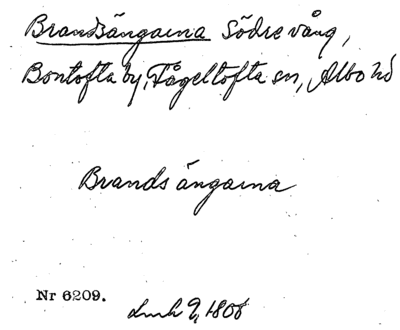 Brandsängarna Södre vång,
Bontofta by, Fågeltofta sn, Albo hd
Brandsängarna
Nr 6209.
9, 1806